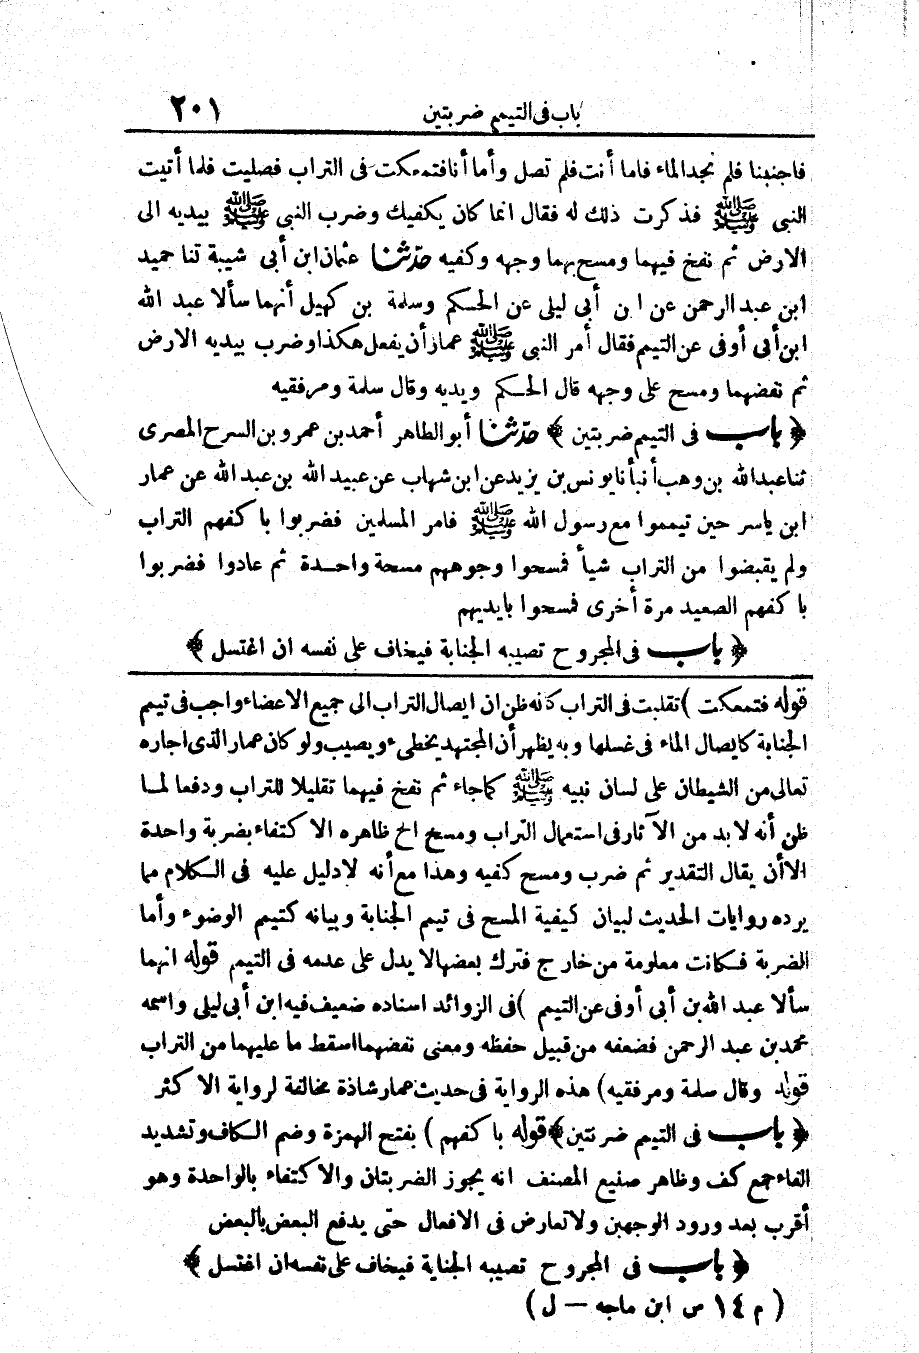 باب فى التيمم ضربتين ٢٠١
فاجنبنا فلم نجد الماء فاما أنت فلم تصل وأما أنا فتمعكت فى التراب فصليت فلما أتيت
النبى ﷺ فذكرت ذلك له فقال انما كان يكفيك وضرب النبى ﷺ بيديه الى
الارض ثم نفخ فيهما ومسح بهما وجهه وكفيه حدّثنا عثمان ابن أبى شيبة ثنا حميد
ابن عبد الرحمن عن ابن أبى ليلى عن الحكم وسلمة بن كهيل أنهما سألا عبد الله
ابن أبى أوفى عن التيمم فقال أمر النبى ﷺ عمارا أن يفعل هكذا وضرب بيديه الارض
ثم نفضهما ومسح على وجهه قال الحكم ويديه وقال سلمة ومرفقيه
﴿ باب فى التيمم ضربتين ﴾ حدّثنا أبو الطاهر أحمد بن عمرو بن السرح المصرى
ثنا عبد الله بن وهب أنبأنا يونس بن يزيد عن ابن شهاب عن عبيد الله بن عبد الله عن عمار
ابن ياسر حين تيمموا مع رسول الله ﷺ فامر المسلمين فضربوا باكفهم التراب
ولم يقبضوا من التراب شيأ فمسحوا وجوههم مسحة واحدة ثم عادوا فضربوا
باكفهم الصعيد مرة أخرى فمسحوا بايديهم
﴿ باب فى المجروح تصيبه الجنابة فيخاف على نفسه ان اغتسل ﴾
قوله فتمعكت ) تقلبت فى التراب كانه ظن ان ايصال التراب الى جميع الاعضاء واجب فى تيمم
الجنابة كايصال الماء فى غسلها وبه يظهر أن المجتهد يخطىء ويصيب ولو كان عمار الذى اجاره
تعالى من الشيطان على لسان نبيه ﷺ كماجاء ثم نفخ فيهما تقليلا للتراب ودفعا لما
ظن أنه لا بد من الآثار فى استعمال التراب ومسح الخ ظاهره الاكتفاء بضربة واحدة
الا أن يقال التقدير ثم ضرب ومسح كفيه وهذا مع أنه لا دليل عليه فى الكلام مما
يرده روايات الحديث لبيان كيفية المسح فى تيمم الجنابة وبيانه كتيمم الوضوء وأما
الضربة فكانت معلومة من خارج فترك بعضها لا يدل على عدمه فى التيمم قوله انهما
سألا عبد الله بن أبى أوفى عن التيمم ) فى الزوائد اسناده ضعيف فيه ابن أبى ليلى واسمه
محمد بن عبد الرحمن فضعفه من قبيل حفظه ومعنى نفضهما اسقط ما عليهما من التراب
قوله وقال سلمة ومرفقيه) هذه الرواية فى حديث عمار شاذة مخالفة لرواية الاكثر
﴿ باب فى التيمم ضربتين ﴾ قوله باكفهم ) بفتح الهمزة وضم الكاف وتشديد
الفاء جمع كف وظاهر صنيع المصنف انه يجوز الضربتان والاكتفاء بالواحدة وهو
أقرب بعد ورود الوجهين ولا تعارض فى الافعال حتى يدفع البعض بالبعض
﴿ باب فى المجروح تصيبه الجناية فيخاف على نفسه ان اغتسل ﴾
( م ١٤ س ابن ماجه — ل )